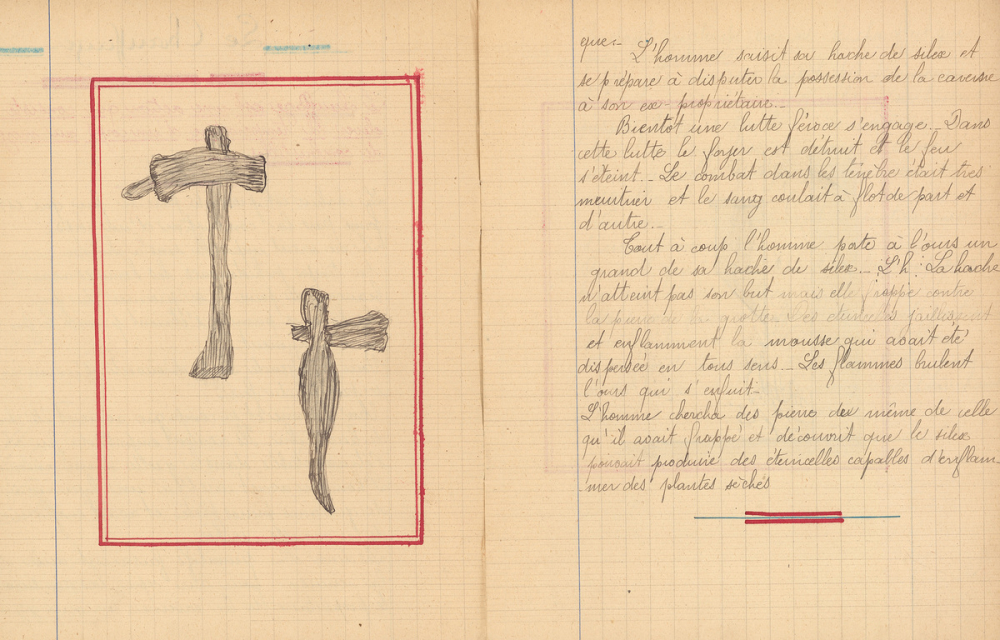 que.-
L'homme saisit sa hache de silex et
se prépare à disputer la possession de la caverne
à son ex-propriétaire..
Bientôt une lutte féroce s'engage.. Dans
cette lutte le foyer est détruit et le feu
s'éteint.. Le combat dans les tenèbre était très
meurtrier et le sang coulait à flot de part et
d'autre..
Tout à coup l'homme porte à l'ours un
grand de sa hache de silex... L'h : La hache
n'atteint pas son but mais elle frappe contre
la pierre de la grotte. Des étincelles jaillissent
et enflamment la mousse qui avait été
dispersée en tous sens.. Les flammes brulent
l'ours qui s'enfuit..
L'homme chercha des pierre de même de celle
qu'il avait frappé et découvrit que le silex
pouvait produire des étincelles capables d'enflam-
mer des plantes séchés